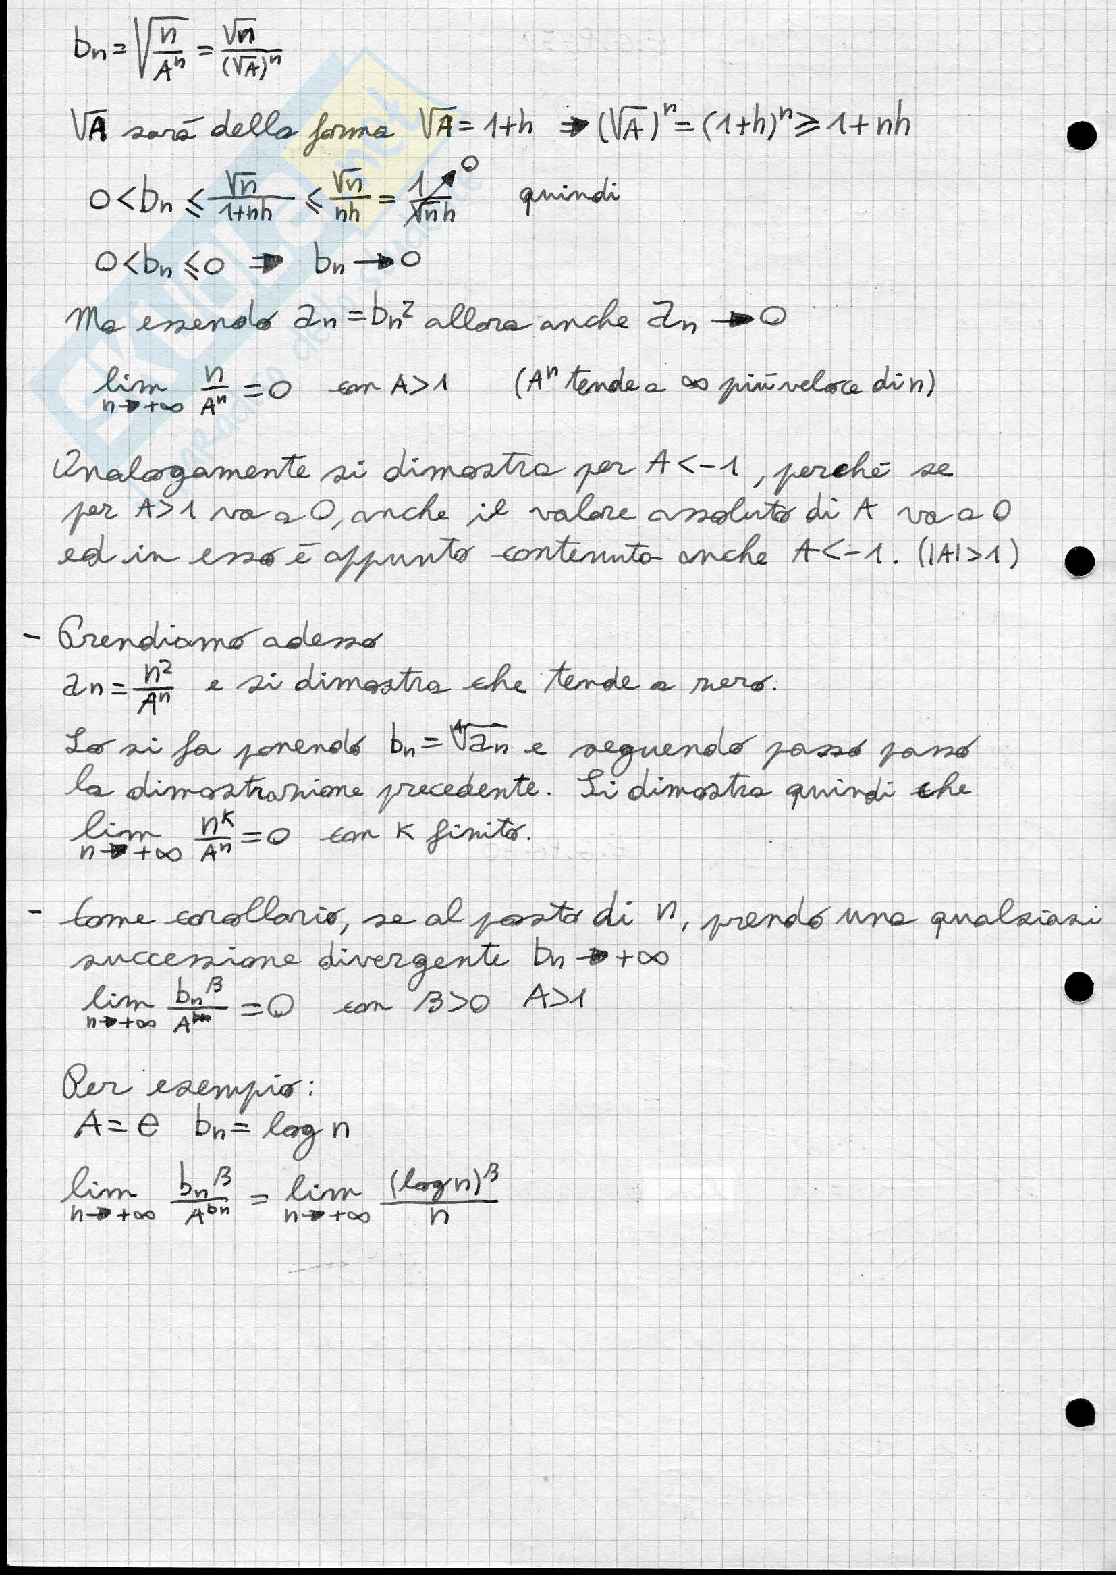 bₙ = √(n/Aⁿ) = √n/(√A)ⁿ
√A sarà della forma √A = 1+h ⇒ (√A)ⁿ = (1+h)ⁿ ≥ 1+nh
0 < bₙ ≤ √n/(1+nh) ≤ √n/(nh) = 1/(√n h) ↗ 0 quindi
0 < bₙ ≤ 0 ⇒ bₙ → 0
Ma essendo aₙ = bₙ² allora anche aₙ → 0
lim n→+∞ n/Aⁿ = 0 con A>1 (Aⁿ tende a ∞ più veloce di n)
Analogamente si dimostra per A<-1, perché se
per A>1 va a 0, anche il valore assoluto di A va a 0
ed in esso è appunto contenuto anche A<-1. (|A|>1)
- Prendiamo adesso
aₙ = n²/Aⁿ e si dimostra che tende a zero.
Lo si fa ponendo bₙ = ⁴√aₙ e seguendo passo passo
la dimostrazione precedente. Si dimostra quindi che
lim n→+∞ nᴷ/Aⁿ = 0 con K finito.
- Come corollario, se al posto di n, prendo una qualsiasi
successione divergente bₙ → +∞
lim n→+∞ bₙ^β/A^bₙ = 0 con β>0 A>1
Per esempio:
A = e bₙ = log n
lim n→+∞ bₙ^β/A^bₙ = lim n→+∞ (log n)^β/n
SKUOLA.net